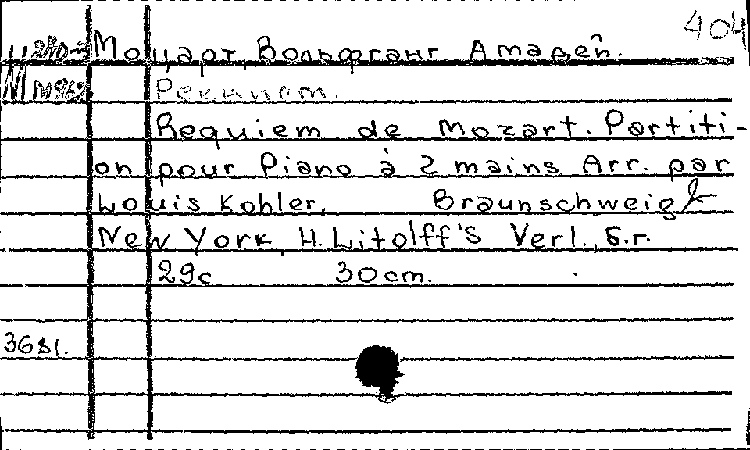 404
Моцарт, Вольфганг Амадей.
Реквием.
Requiem de Mozart. Partiti-
on pour Piano à 2 mains Arr. par
Louis Kohler. Braunschweig
New York, H. Litolff's Verl., s.r.
29c 30cm.
3681.